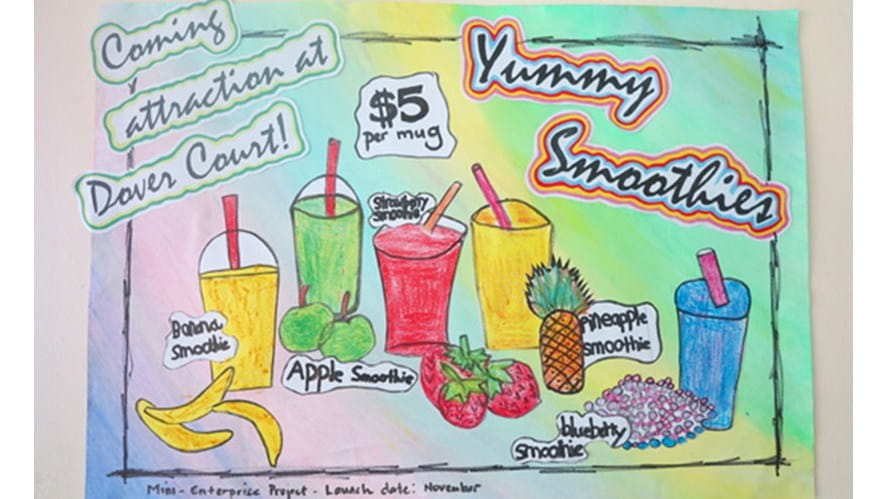 Coming
attraction at
Dover Court!
Yummy
Smoothies
$5
per mug
Strawberry
Smoothie
Banana
Smoothie
Apple Smoothie
Pineapple
smoothie
blueberry
smoothie
Mini-Enterprise Project - Launch date: November